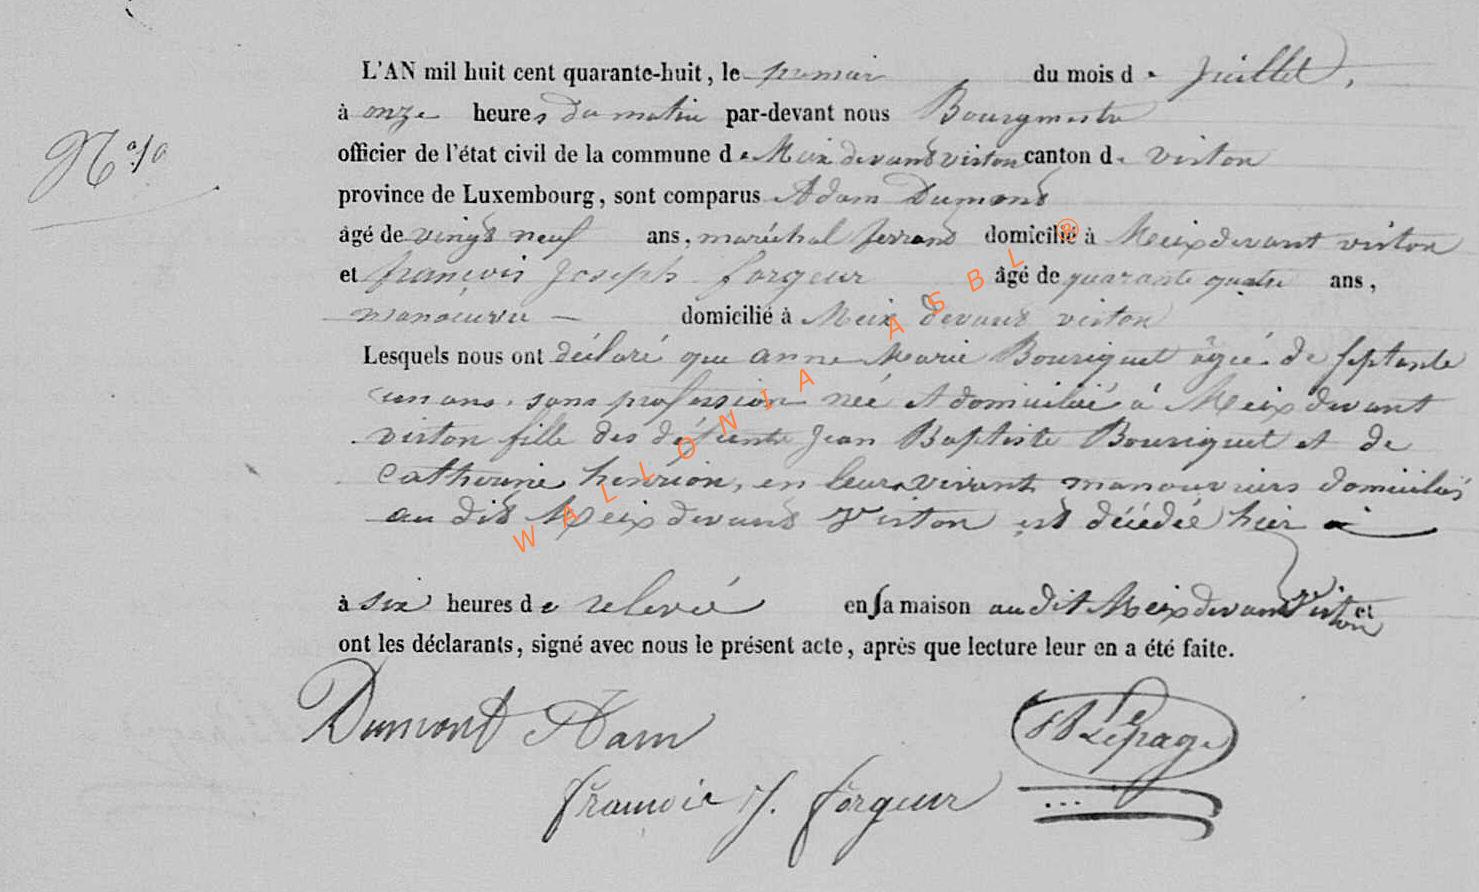 L'AN mil huit cent quarante-huit, le premier du mois de Juillet,
à onze heures du matin par-devant nous Bourgmestre
N° 10
officier de l'état civil de la commune de Meix devant virton canton de virton
province de Luxembourg, sont comparus Adam Dumont
âgé de vingt neuf ans, maréchal ferrant domicilié à Meix devant virton
et françois Joseph forgeur âgé de quarante quatre ans,
manoeuvre — domicilié à Meix devant virton
Lesquels nous ont déclaré que anne Marie Bouriguet âgée de septante
un ans, sans profession née et domiciliée à Meix devant
virton fille des défunts Jean Baptiste Bouriguet et de
Catherine henrion, en leurs vivant manouvriers domiciliés
au dit Meix devant Virton est décédée hier
à six heures de relevée en sa maison au dit Meix devant Virton et
ont les déclarants, signé avec nous le présent acte, après que lecture leur en a été faite.
Dumont Adam
Lepage
françois J. forgeur
WALLONIA ASBL ®